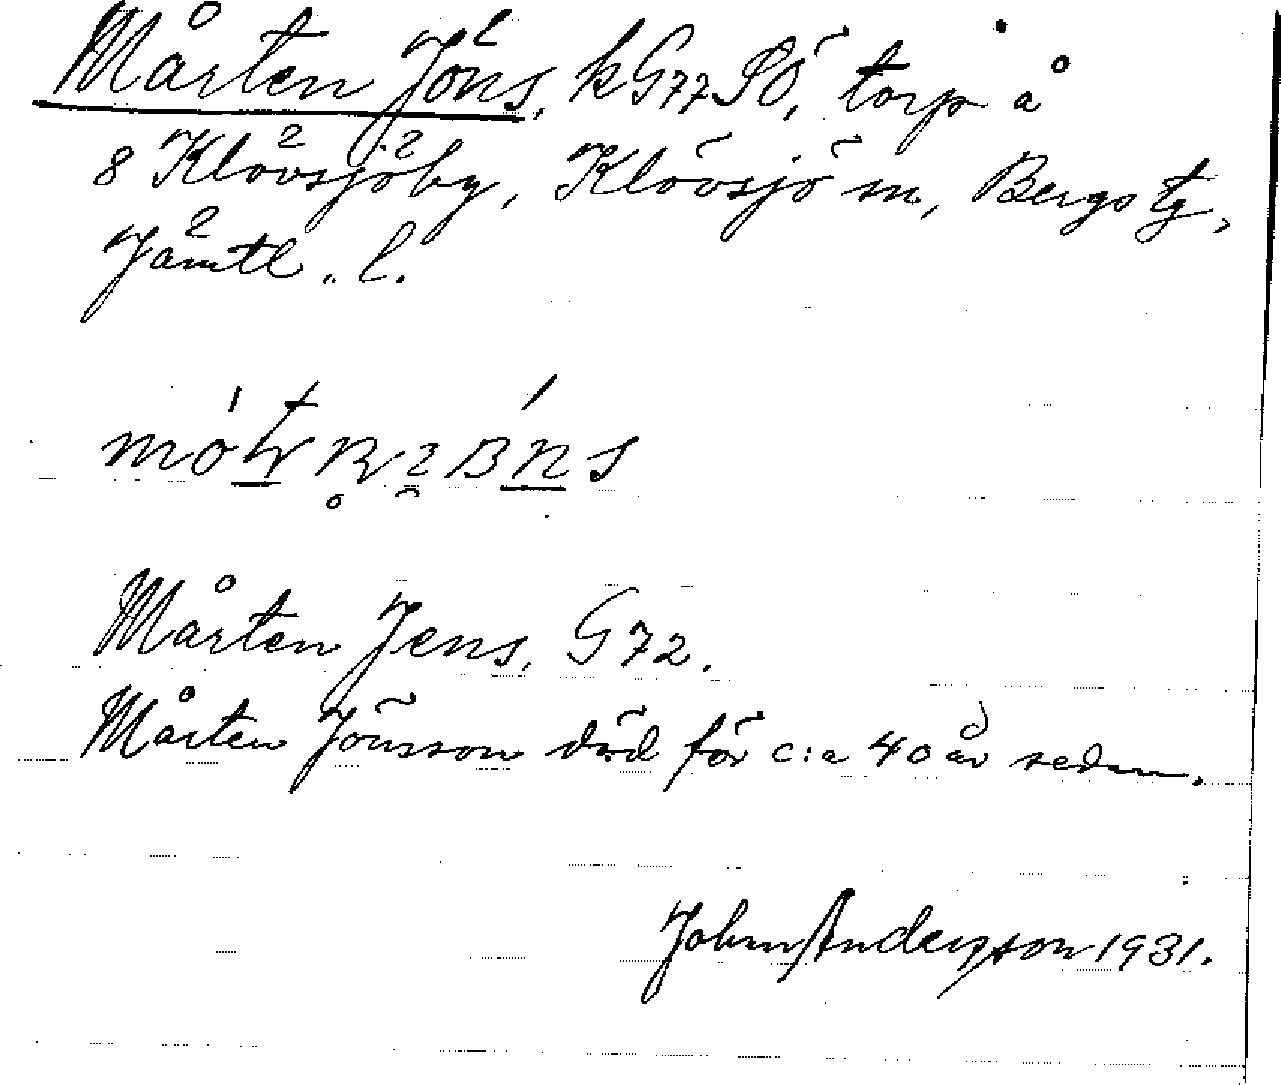 Mårten Jöns, k G77 SÖ, torp å
8 Klövsjöby, Klövsjö sn, Bergs tg,
Jämtl. l.
Mårten Jens, G 72.
Mårten Jönsson död för c:a 40 år sedan.
John Andersson 1931.